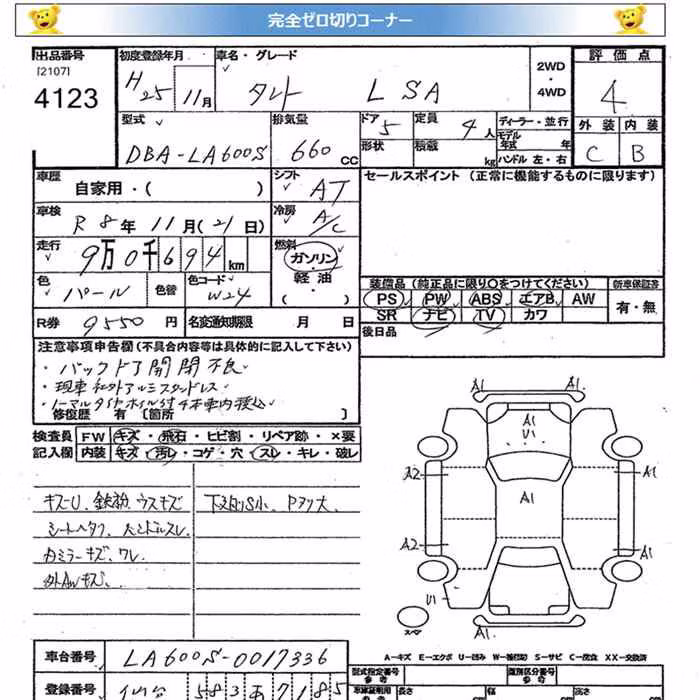 完全ゼロ切りコーナー
出品番号 初度登録年月 車名・グレード 2WD・4WD 評価点
[2107]
4123 H25年11月 タント LSA 4
型式 排気量 ドア 5 定員 4人 ディーラー・並行 外装 内装
DBA-LA600S 660cc 形状 積載 kg モデル年式 年 C B
ハンドル 左・右
車歴 自家用・( ) シフト AT セールスポイント (正常に機能するものに限ります)
車検 R8年11月(21日) 冷房 A/C
走行 9万0千694km 燃料 ガソリン・軽油・( )
色 パール 色替 色コード W24 装備品 (純正品に限り○をつけてください) 新車保証書
PS PW ABS エアB AW 有・無
SR ナビ TV カワ
R券 9550円 名変通知期限 月 日 後日品
注意事項申告欄(不具合内容等は具体的に記入して下さい)
・バックドア開閉不良
・現車社外アルミスタッドレス
・ノーマルタイヤホイル付4本車内積込
修復歴 有 [箇所 ]
検査員 FW キズ・飛石・ヒビ割・リペア跡・×要
記入欄 内装 キズ・汚レ・コゲ・穴・スレ・キレ・破レ
キズU. 鉄粉. ウスキズ
シートヘタリ.
カミラーキズ. ワレ.
外AWキズ.
A1 A1
A1
U1
A2 A1
A1
A2 A1
U1
スペア
A1
A-キズ E-エクボ U-凹み W-補修跡 S-サビ C-腐食 XX-交換済
車台番号 LA600S-0017336
型式指定番号 類別区分番号
参考 参考
登録番号 仙台 583 あ 7185
車庫証明用 長さ 幅 高さ